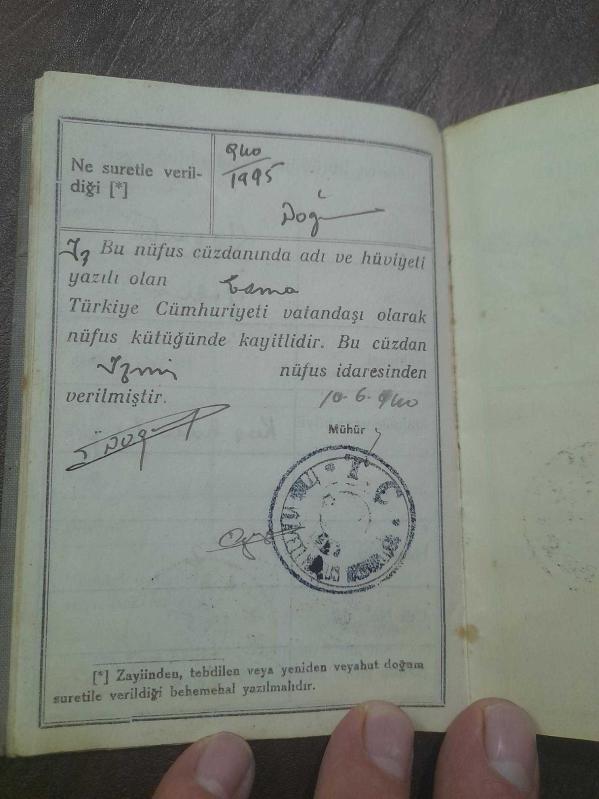 Ne suretle veril-
diği [*]
940
1995
Doğ
İz Bu nüfus cüzdanında adı ve hüviyeti
yazılı olan Esma
Türkiye Cümhuriyeti vatandaşı olarak
nüfus kütüğünde kayitlidir. Bu cüzdan
İzmir nüfus idaresinden
verilmiştir. 10-6-940
Mühür
T. C.
[*] Zayiinden, tebdilen veya yeniden veyahut doğum
suretile verildiği behemehal yazılmalıdır.